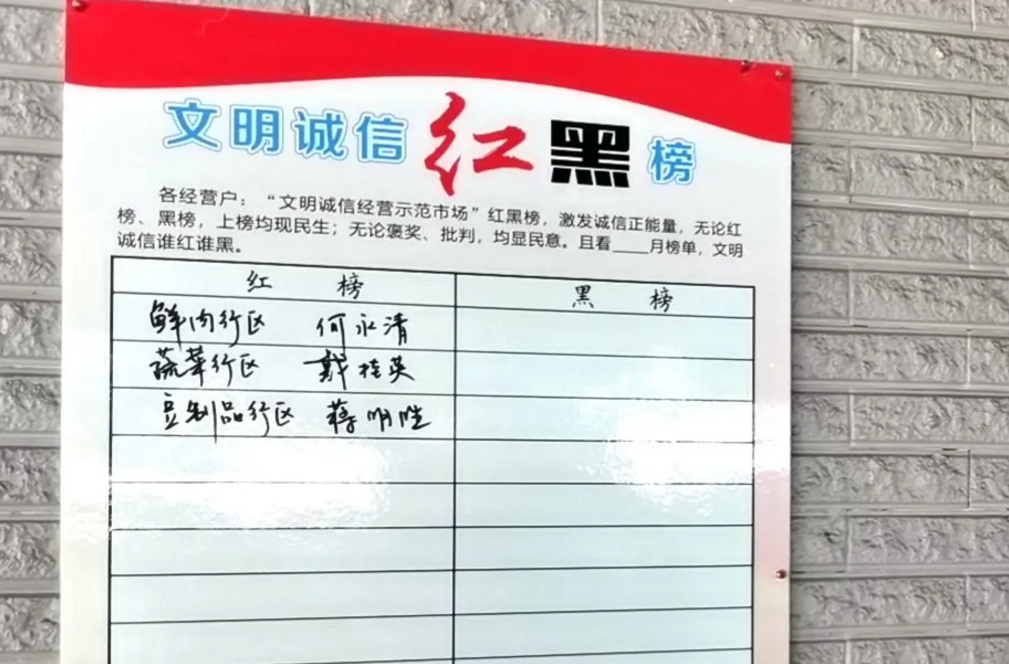 文明诚信红黑榜
各经营户：“文明诚信经营示范市场”红黑榜，激发诚信正能量，无论红
榜、黑榜，上榜均现民生；无论褒奖、批判，均显民意。且看____月榜单，文明
诚信谁红谁黑。
红 榜 黑 榜
鲜肉行区 何永清
蔬菜行区 戴桂英
豆制品行区 蒋明胜